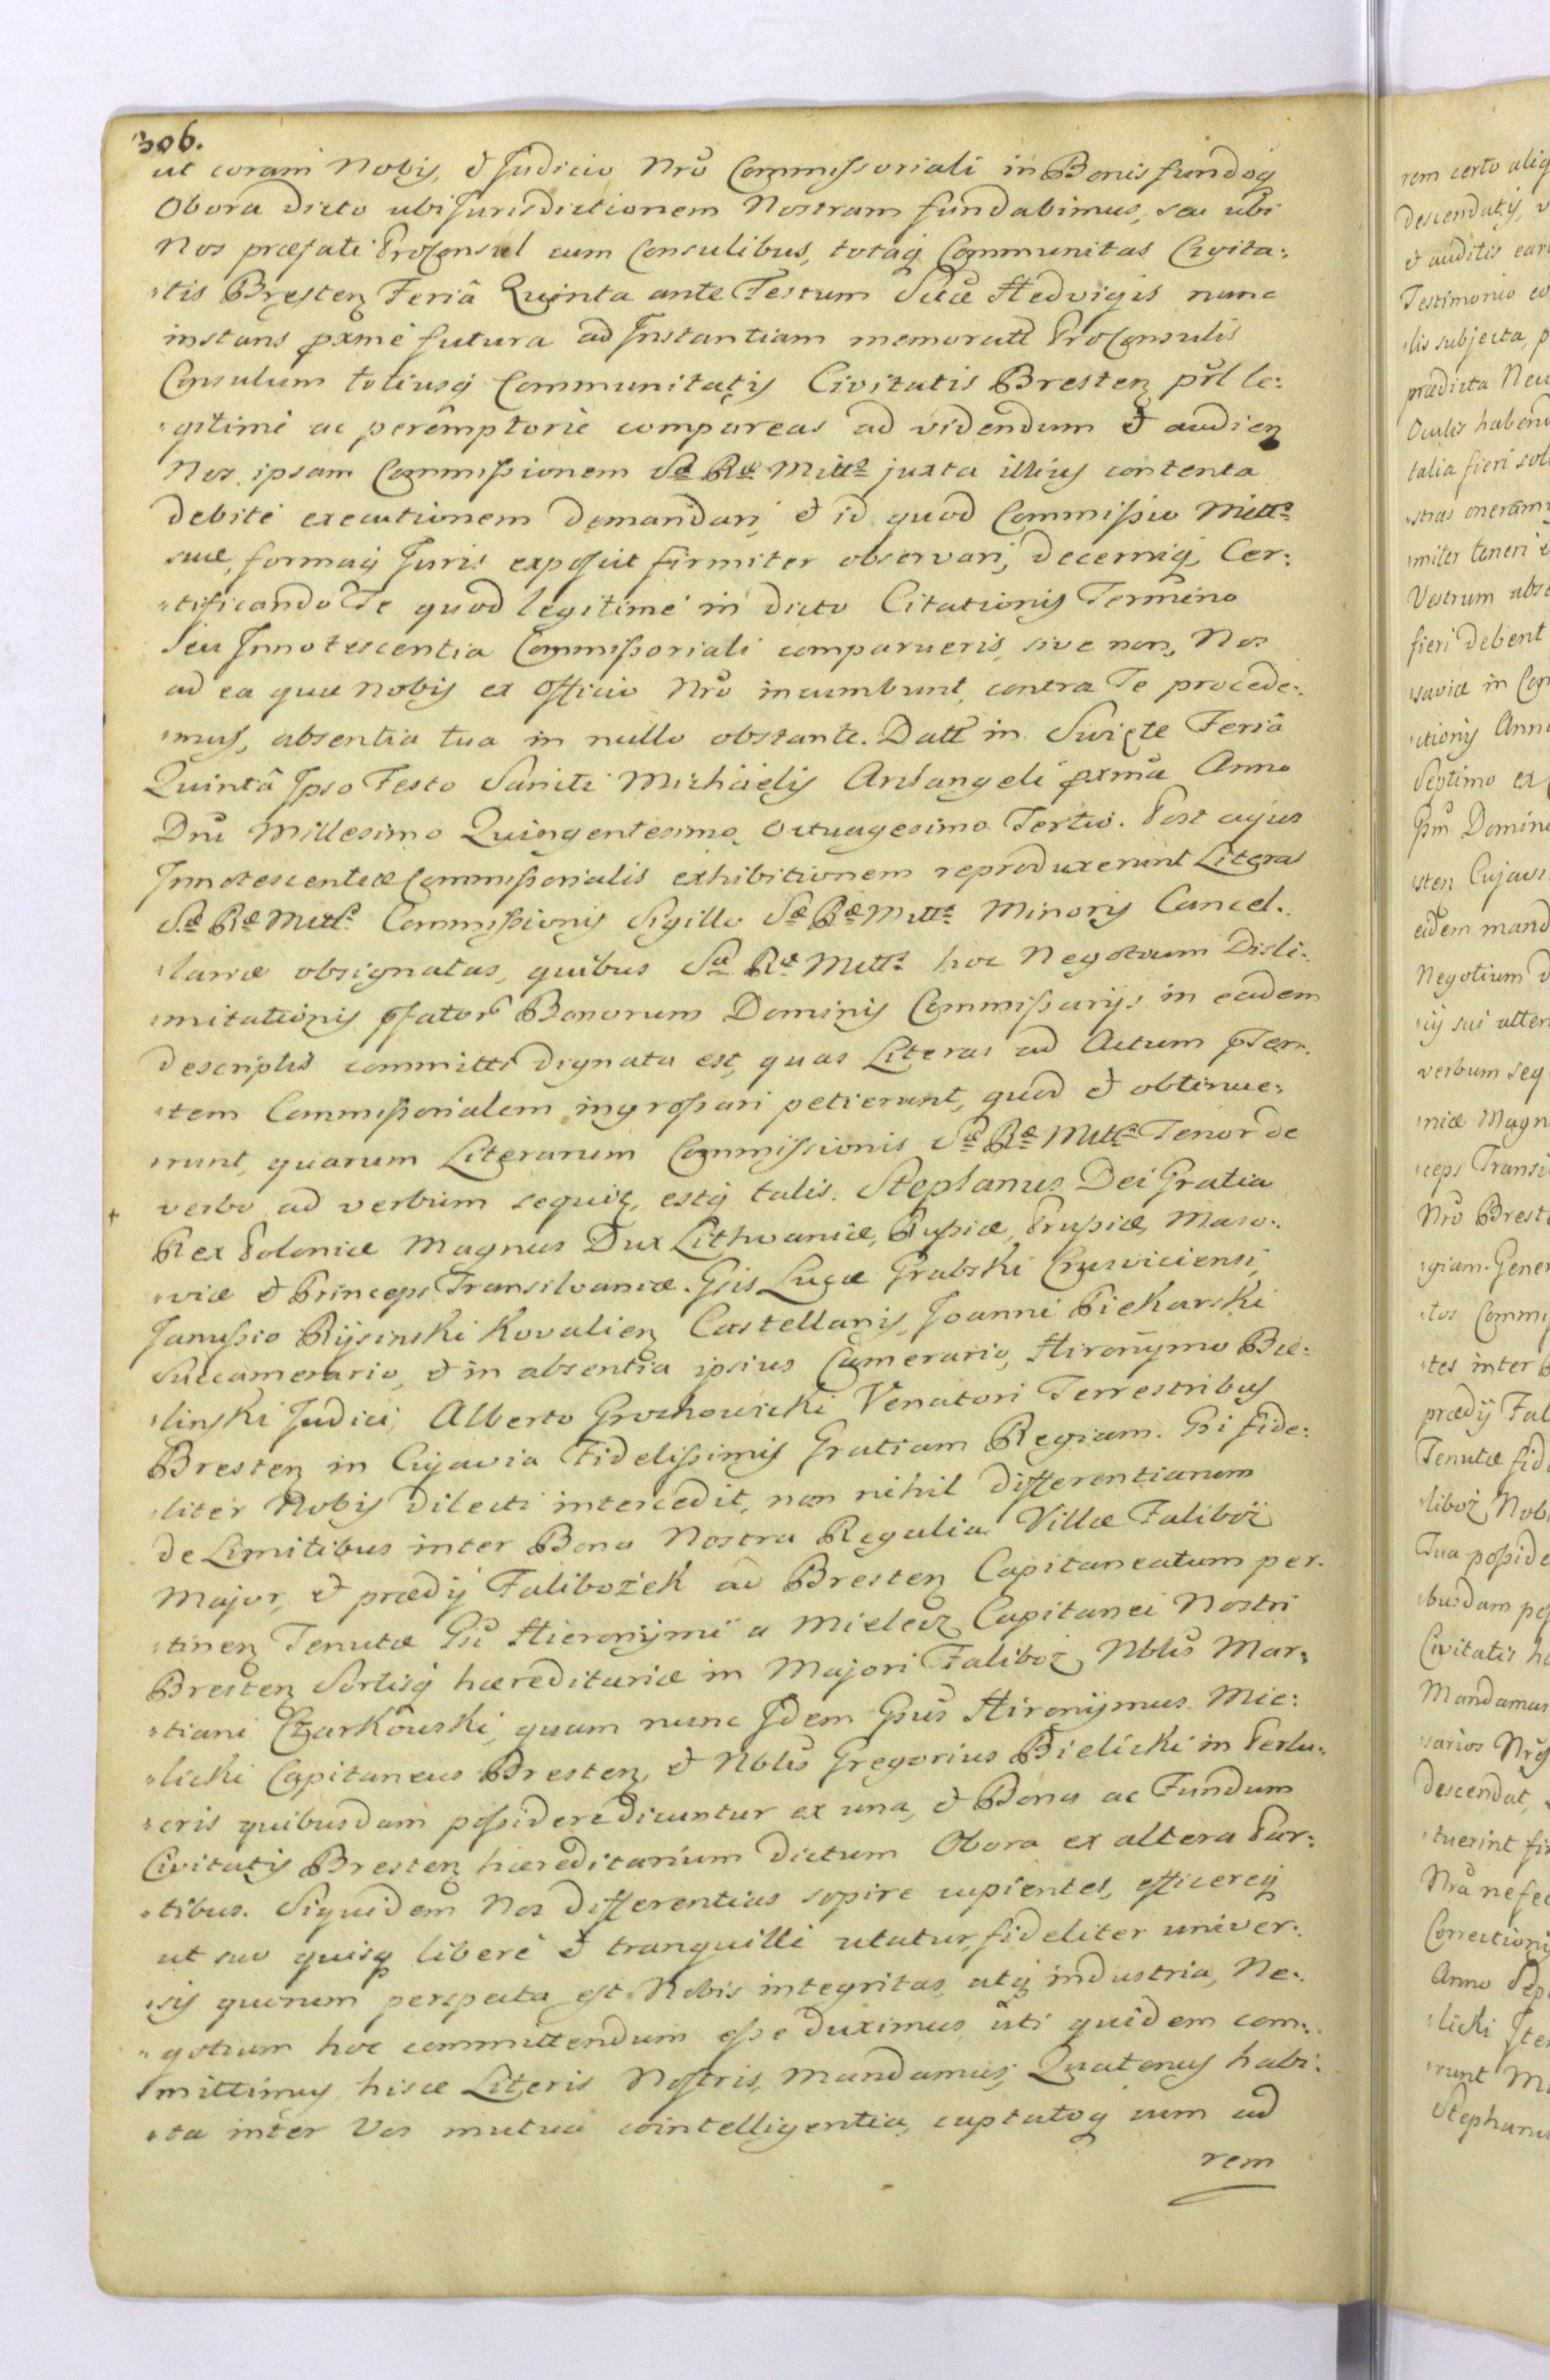 306.
ut coram Nobis, & Judicio Nrō Commissoriali in Bonis fundoq
Obora dicto ubi Jurisdictionem Nostram fundabimus, seu ubi
Nos præfati ProConsul cum Consulibus, totaq Communitas Civita:
:tis Bresten Feriâ Quinta ante Festum Sctæ Hedvigis nunc
instans pxmè futura ad Instantiam memorati ProConsulis
Consulum totiusq Communitatis Civitatis Bresten prl le:
:gitimè ac perêmptoriè compareas ad videndum & audien
Nos ipsam Commissionem Sæ Ræ Mttis juxta illius contenta
debitè executionem demandari, & id quod Commissio Mttis
suæ, formaq Juris exposcit firmiter observari, decerniq, Cer:
:tificando Te quod legitimè in dicto Citationis Termino
seu Innotescentia Commissoriali comparueris, sive non, Nos
ad ea quæ nobis ex Officio Nrō incumbunt, contra Te procede:
:mus, absentia tua in nullo obstante. Datt in Swięte Feriâ
Quintâ Ipso Festo Sancti Michäelis Archangeli pxmā Anno
Dnī Millesimo Quingentesimo Octuagesimo Tertio. Post cujus
Innotescentiæ Commissorialis exhibitionem reproduxerunt Literas
Sæ Ræ Mttis Commissionis Sigillo Sæ Ræ Mttis Minoris Cancel.
:lariæ obsignatas, quibus Sæ Ræ Mttis hoc Negotium Disli:
:mitationis pfator Bonorum Dominis Commissarijs in eadem
descriptis committi dignata est, quas Literas ad Actum
:tem Commissorialem ingrossari petierunt, quod & obtinue:
:runt, quarum Literarum Commissionis Sæ Ræ Mttis Tenor de
verbo ad verbum sequit, estq talis. Stephanus Dei Gratia
Rex Poloniæ Magnus Dux Lithwaniæ, Russiæ, Prussiæ, Maso:
:viæ & Princeps Transilvaniæ. Gsis Lucæ Grabski Cruswiciensi,
Janussio Rijsinski Kovalien Castellanis, Joanni Piekarski
Succamerario, & in absentia ipsius Camerario, Hironymo Bie:
:linski Judici, Alberto Grochowicki Venatori Terrestribus
Bresten in Cujavia Fidelissimis Gratiam Regiam. Gsi fide:
:liter Nobis Dilecti intercedit, non nihil differentiarum
de Limitibus inter Bona Nostra Regalia Villæ Faliboż
Major, & prædij Falibożek ad Bresten Capitaneatum per.
:tinen Tenutæ Gsī Hieronijmi a Mielecz Capitanei Nostri
Bresten Sortisq hæreditariæ in Majori Faliboż Nblis Mar:
:tiani Czarkowski, quam nunc Idem Gsus Hironijmus Mie:
:licki Capitaneus Bresten, & Nblis Gregorius Bielicki in Perlu:
:cris quibusdam possidere Dicuntur ex una, & Bona ac Fundum
Civitatis Bresten hæreditarium dictum Obora ex altera Par:
:tibus. Siquidem Nos differentias sopire cupientes, efficereq
ut suo quisq liberè & tranquillè utatur, fideliter univer:
:sis quorum perspecta est Nobis integritas, atq industria, Ne:
:gotium hoc committendum esse duximus uti quidem com:
mittimus hisce Literis Nostris, Mandamus, Quatenus habi:
:ta inter Vos mutua cointelligentia, captatoq cum ad
rem
rem certo aliq
descendatis, v
& auditis
Testimonio co
:lis subjecta, p
prædicta
Oculis habend
talia fieri
:stras
:miter teneri &
Vestrum
fieri debent
:saviæ in Con
:ctionis Anno
Septimo ex
Dominu
:sten Cujavi
eidem mand
Negotium
:ij sui
verbum seq
:niæ Magn
:ceps Transi
Nrō Brest
:giam. Gener
:tos Commi
:tes inter
prædij Fal
Tenutæ fid
:liboż Nob
Tua posside
:busdam pos
Civitatis hæ
Mandamus
:sarios Nrs
descendat,
:tuerint fir
Nrā
Correctionis
Anno
:licki
:runt
Stephanus